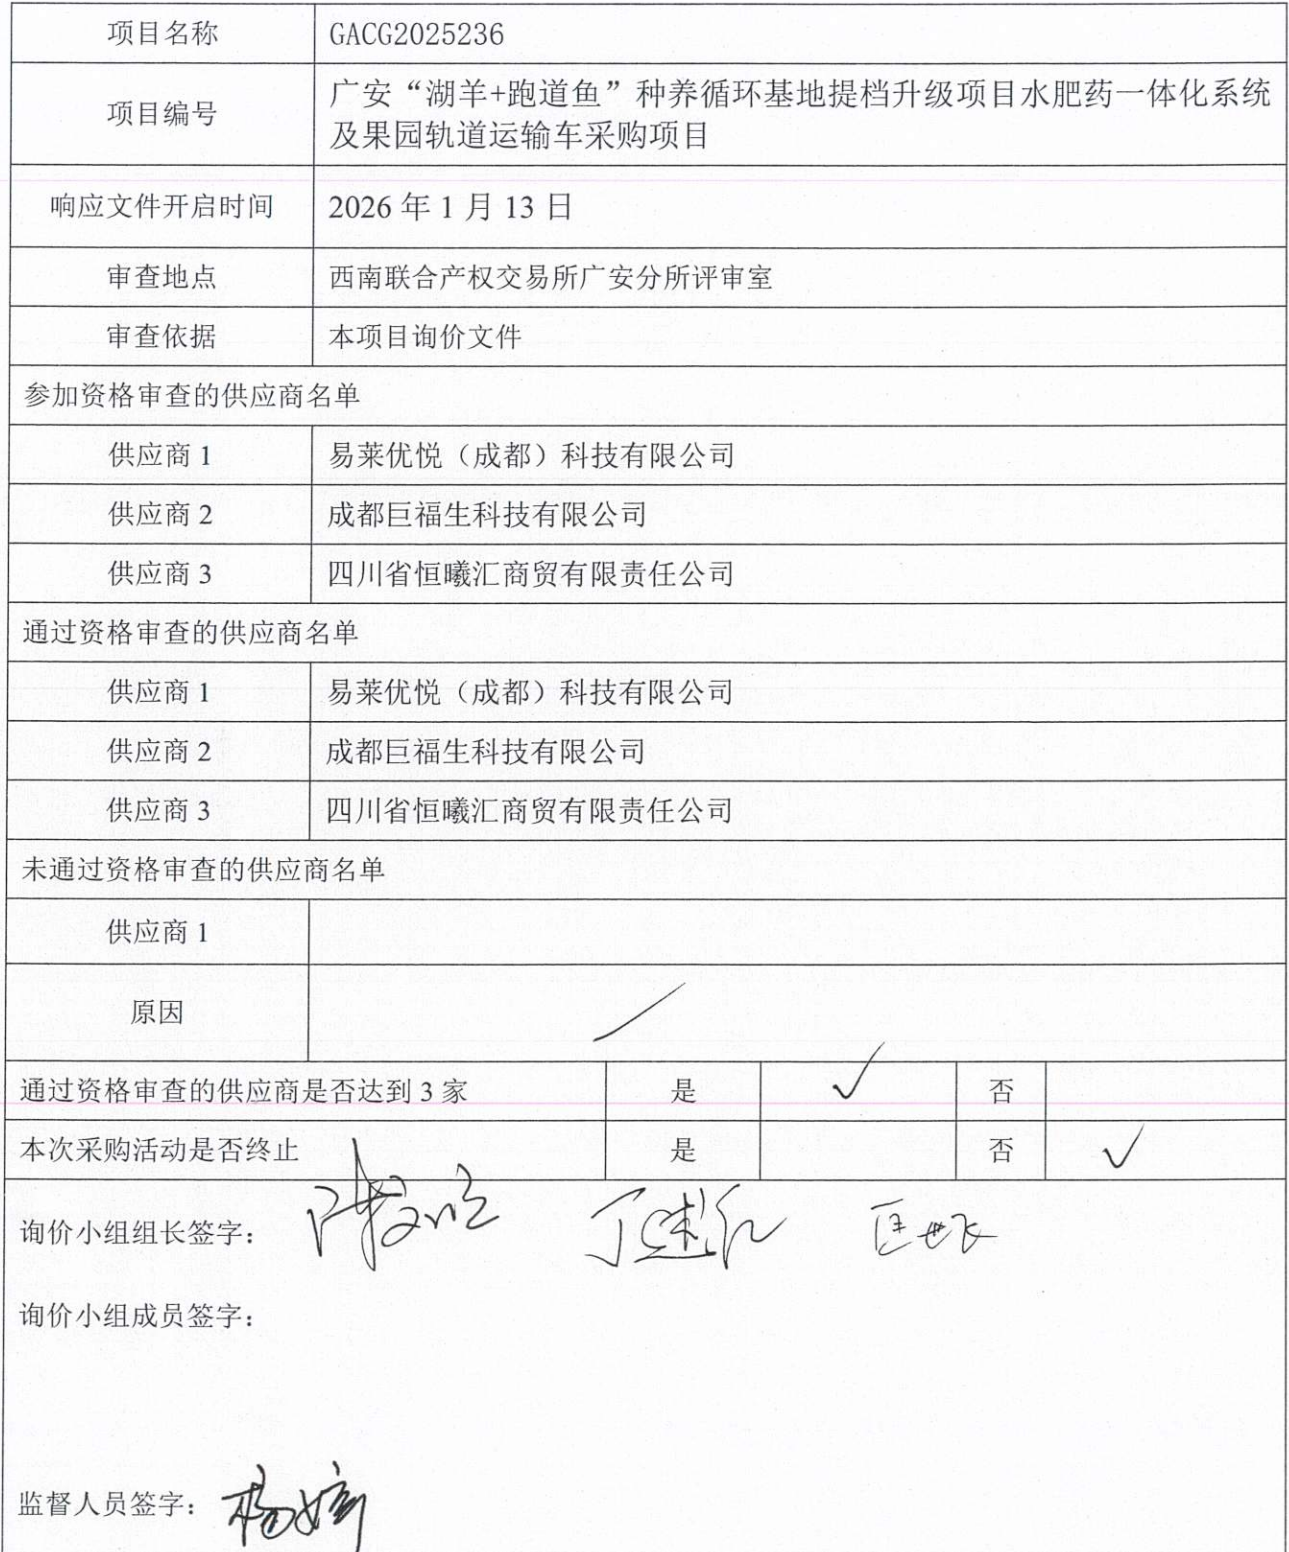 项目名称 GACG2025236
项目编号 广安“湖羊+跑道鱼”种养循环基地提档升级项目水肥药一体化系统
及果园轨道运输车采购项目
响应文件开启时间 2026年1月13日
审查地点 西南联合产权交易所广安分所评审室
审查依据 本项目询价文件
参加资格审查的供应商名单
供应商1 易莱优悦（成都）科技有限公司
供应商2 成都巨福生科技有限公司
供应商3 四川省恒曦汇商贸有限责任公司
通过资格审查的供应商名单
供应商1 易莱优悦（成都）科技有限公司
供应商2 成都巨福生科技有限公司
供应商3 四川省恒曦汇商贸有限责任公司
未通过资格审查的供应商名单
供应商1
原因 /
通过资格审查的供应商是否达到3家 是 ✓ 否
本次采购活动是否终止 是 否 ✓
询价小组组长签字：
询价小组成员签字：
监督人员签字：